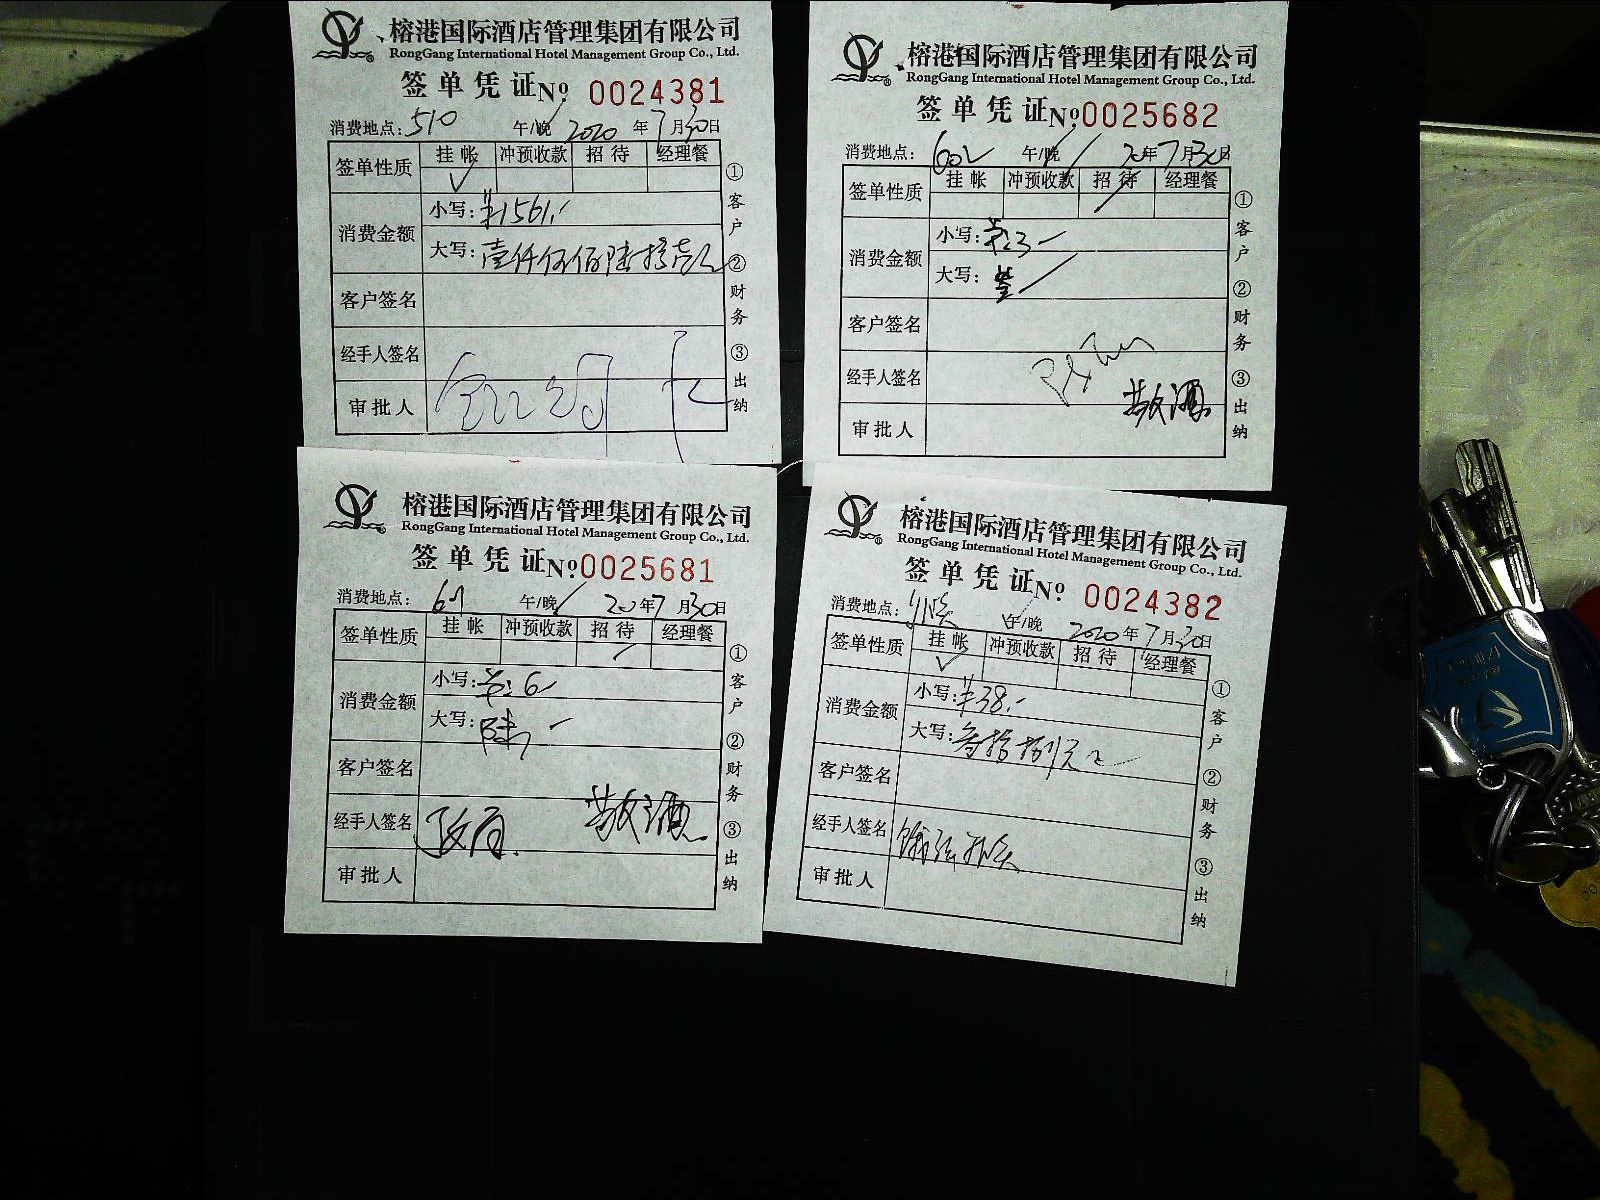 榕港国际酒店管理集团有限公司
RongGang International Hotel Management Group Co., Ltd.
签单凭证 Nº 0024381
消费地点: 510 午/晚 2020 年 7 月 30 日
签单性质 挂帐 冲预收款 招待 经理餐
消费金额 小写: ¥1561.-
大写: 壹仟伍佰陆拾壹元
客户签名
经手人签名
审批人
①客户 ②财务 ③出纳
榕港国际酒店管理集团有限公司
RongGang International Hotel Management Group Co., Ltd.
签单凭证 Nº 0025682
消费地点: 602 午/晚 20 年 7 月 30 日
签单性质 挂帐 冲预收款 招待 经理餐
消费金额 小写:
大写:
客户签名
经手人签名 敬酒
审批人
①客户 ②财务 ③出纳
榕港国际酒店管理集团有限公司
RongGang International Hotel Management Group Co., Ltd.
签单凭证 Nº 0025681
消费地点: 午/晚 20 年 7 月 30 日
签单性质 挂帐 冲预收款 招待 经理餐
消费金额 小写: 6
大写: 陆
客户签名
经手人签名 政府 敬酒
审批人
①客户 ②财务 ③出纳
榕港国际酒店管理集团有限公司
RongGang International Hotel Management Group Co., Ltd.
签单凭证 Nº 0024382
消费地点: 午/晚 2020 年 7 月 30 日
签单性质 挂帐 冲预收款 招待 经理餐
消费金额 小写: ¥38.-
大写: 叁拾捌元
客户签名
经手人签名
审批人
①客户 ②财务 ③出纳